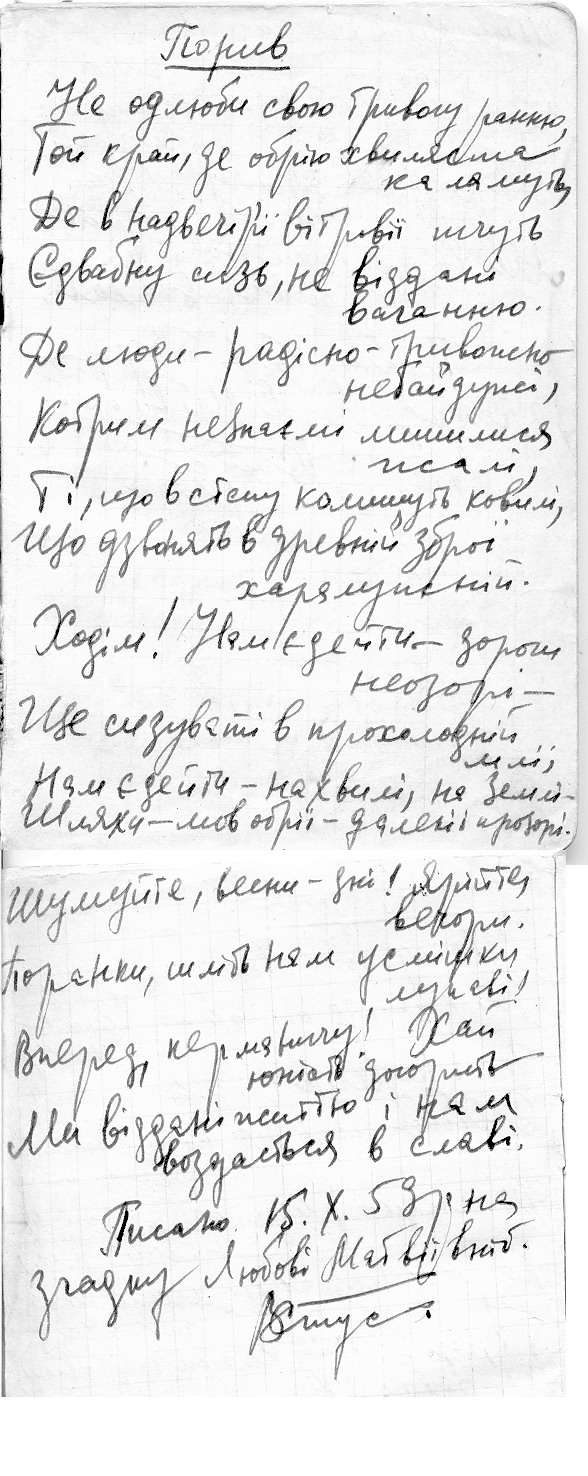 Порив
Не одлюби свою тривогу ранню,
Той край, де обрію хвиляста
каламуть,
Де в надвечір'ї вітровії тчуть
Єдвабну сизь, не віддані
ваганню.
Де люди – радісно-тривожно
небайдужі,
Котрим незнаємі лишилися
жалі,
Ті, що в степу колишуть ковилі,
Що дзвонять в древній зброї
харалужній.
Ходім! Нам є де йти – дороги
неозорі –
Ще сизуваті в прохолодній
млі,
Нам є де йти – на хвилі, на землі –
Шляхи – мов обрії – далекі і прозорі.
Шумуйте, весни – дні!
вечори.
Поранки, шліть нам усмішку
лукаві!
Вперед, керманичу! Хай
юність догорить –
Ми віддані життю і нам
воздасться в славі.
Писано 15. X. 59 р. на
згадку Любові Матвіївній.
ВСтус